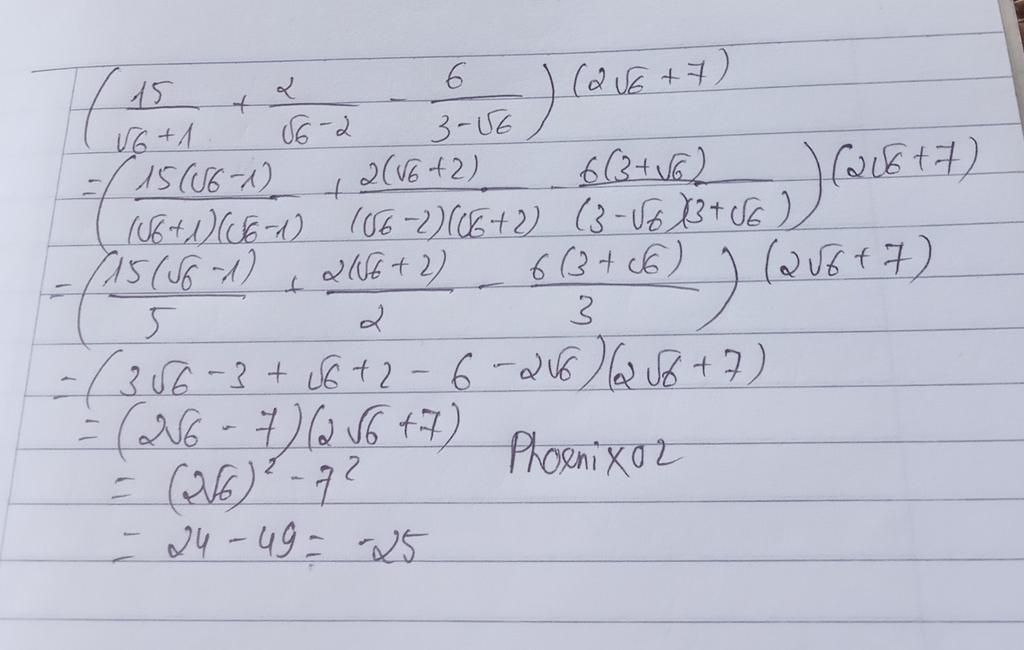 (15/(√6+1) + 2/(√6-2) - 6/(3-√6))(2√6+7)
=(15(√6-1)/((√6+1)(√6-1)) + 2(√6+2)/((√6-2)(√6+2)) - 6(3+√6)/((3-√6)(3+√6)))(2√6+7)
=(15(√6-1)/5 + 2(√6+2)/2 - 6(3+√6)/3)(2√6+7)
=(3√6-3+√6+2-6-2√6)(2√6+7)
=(2√6-7)(2√6+7)
Phoenix02
=(2√6)²-7²
=24-49=-25